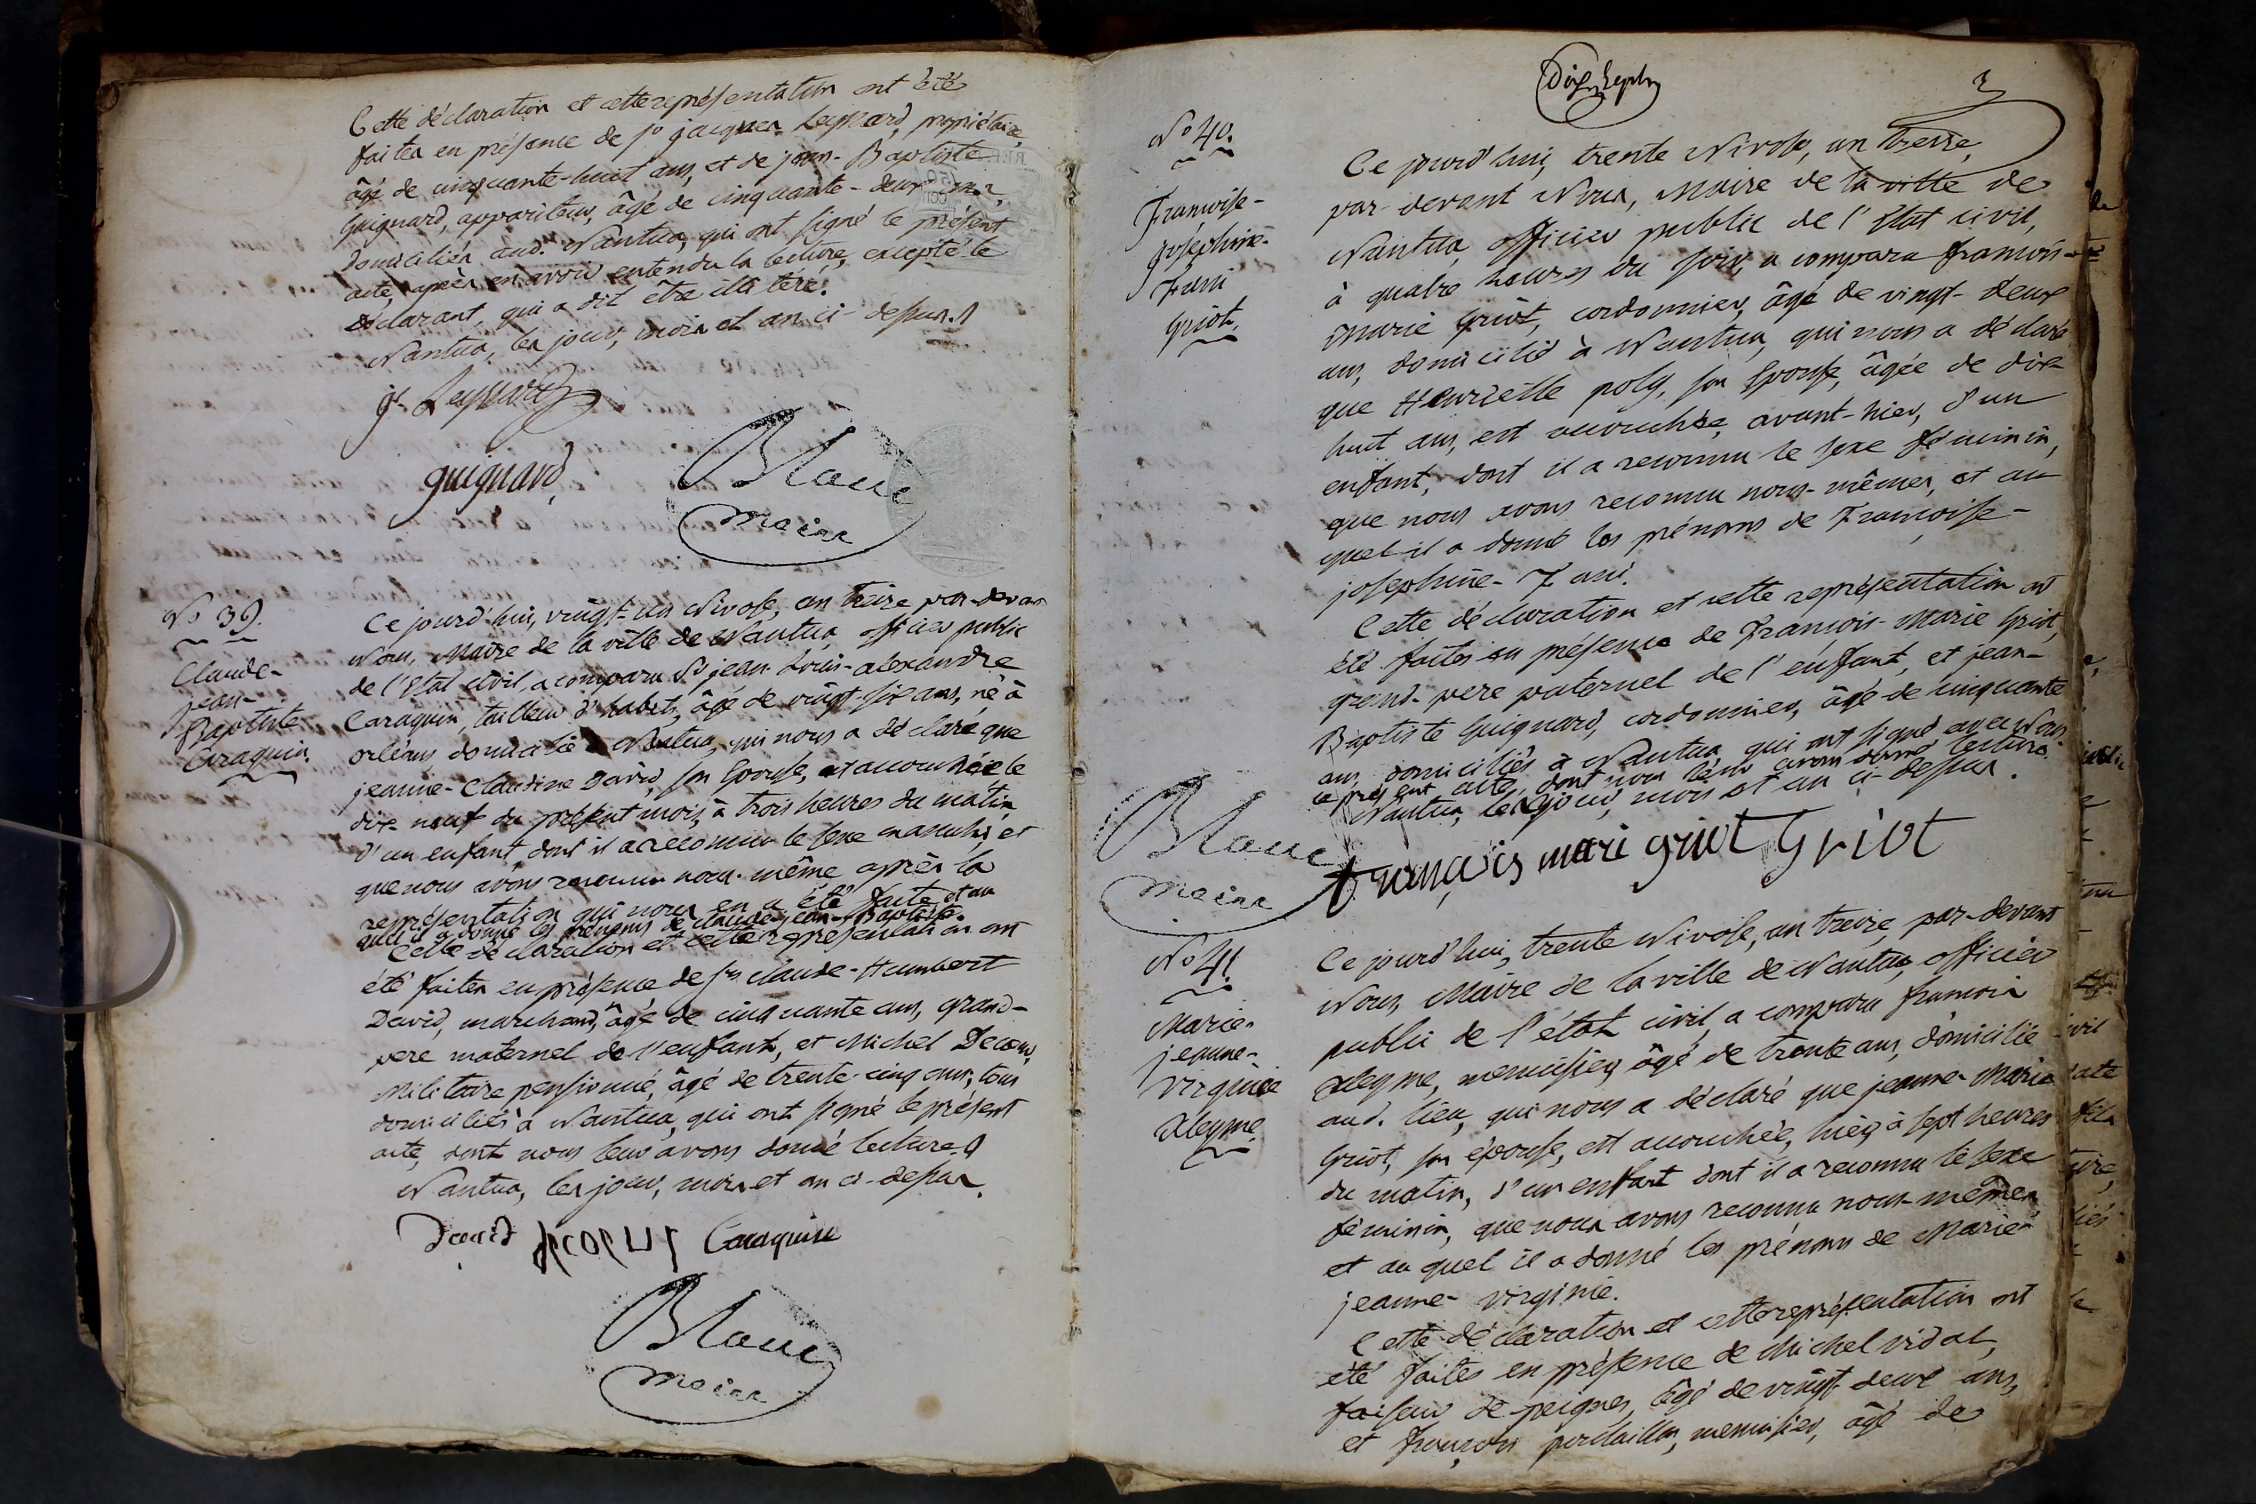 Cette déclaration et cette représentation ont été
faites en présence de Sr jacques Leynard, propriétaire
âgé de cinquante-huit ans, et de jean-Baptiste
Guignard, appariteur, âgé de cinquante-deux ans,
domiciliés aud. Nantua, qui ont signé le présent
acte, après en avoir entendu la lecture, excepté le
déclarant, qui a dit être illitéré.
Nantua, les jour, mois et an ci-dessus.
guignard
Blanc
maire
No 39.
Claude-
jean-
Baptiste
Caraquin.
Ce jourd'hui, vingt-un Nivose, an treize par-devant
Nous, Maire de la ville de Nantua, officier public
de l'Etat civil, a comparu Sr jean-Louis-alexandre
Caraquin, tailleur d'habits, âgé de vingt-six ans, né à
orléans, domicilié à Nantua, qui nous a déclaré que
jeanne-Claudine David, son Epouse, est accouchée le
dix-neuf du présent mois, à trois heures du matin,
d'un enfant dont il a reconnu le sexe masculin, et
que nous avons reconnu nous-même après la
représentation qui nous en a été faite et au
quel il a donné les prénoms de claude-jean-Baptiste.
Cette déclaration et cette représentation ont
été faites en présence de Sr claude-Humbert
David, marchand, âgé de cinquante ans, grand-
pere maternel de l'enfant, et Michel Decoeur,
Militaire pensionné, âgé de trente-cinq ans, tous
domiciliés à Nantua, qui ont signé le présent
acte, dont nous leur avons donné lecture.
Nantua, les jour, mois et an ci-dessus.
David decoeur Caraquin
Blanc
maire
Dix-Sept
3
No 40.
Françoise-
joséphine-
Fani
Griot.
Ce jourd'hui, trente Nivose, an treize,
par-devant Nous, Maire de la ville de
Nantua, officier public de l'Etat civil,
à quatre heures du soir, a comparu françois-
Marie Griot, cordonnier, âgé de vingt-deux
ans, domicilié à Nantua, qui nous a déclaré
que Henriette poly, son Epouse, âgée de dix-
huit ans, est accouchée, avant-hier, d'un
enfant, dont il a reconnu le sexe féminin,
que nous avons reconnu nous-mêmes, et au
quel il a donné les prénoms de Françoise-
josephine-Fani.
Cette déclaration et cette représentation ont
été faites en présence de François-Marie Griot,
grand-pere paternel de l'enfant, et jean-
Baptiste Guignard, cordonnier, âgé de cinquante
ans, domiciliés à Nantua, qui ont signé avec Nous
le présent acte, dont nous leur avons donné lecture.
Nantua, les jour, mois et an ci-dessus.
Blanc
maire
françois mari griot Griot
No 41.
Marie-
jeanne-
Virginie
Aleyme.
Ce jourd'hui, trente Nivose, an treize, par-devant
Nous, Maire de la ville de Nantua, officier
public de l'état civil, a comparu françois
Aleyme, menuisier, âgé de trente ans, domicilié
aud. lieu, qui nous a déclaré que jeanne-Marie
Griot, son épouse, est accouchée, hier, à sept heures
du matin, d'un enfant dont il a reconnu le sexe
féminin, que nous avons reconnu nous-mêmes
et au quel il a donné les prénoms de Marie-
jeanne-virginie.
Cette déclaration et cette représentation ont
été faites en présence de Michel vidal,
faiseur de peignes, âgé de vingt-deux ans,
et françois perdaillon, menuisier, âgé de